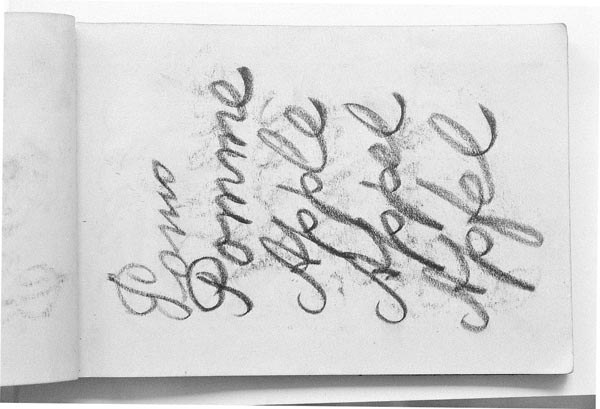 Pomo
Pomme
Apple
Appel
Apfel